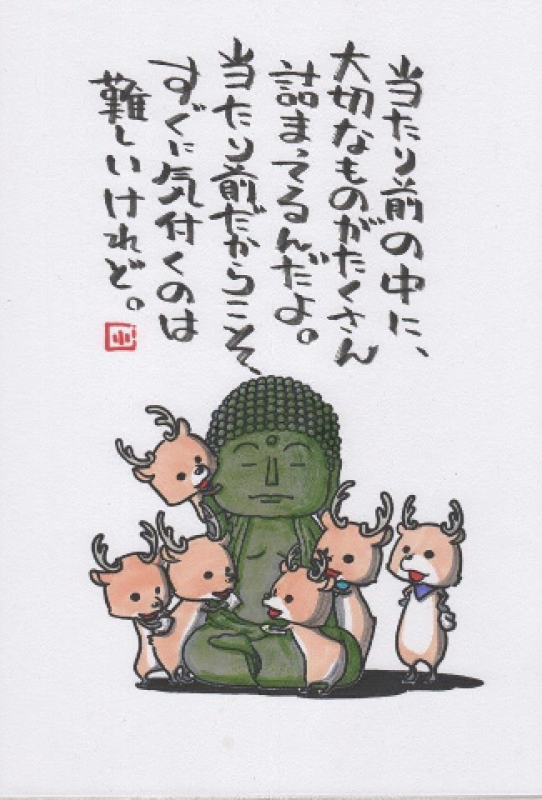 当たり前の中に、
大切なものがたくさん
詰まってるんだよ。
当たり前だからこそ、
すぐに気付くのは
難しいけれど。
小